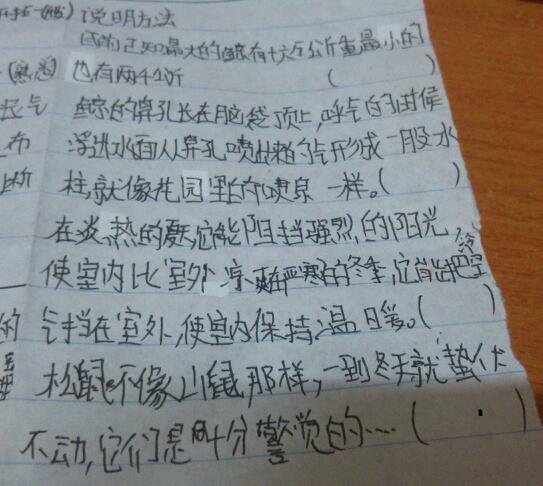 说明方法
目前已知最大的鲸有十六万公斤重,最小的
(熟悉 也有两千公斤 ( )
气 鲸的鼻孔长在脑袋顶上,呼气的时候
布 浮出水面从鼻孔喷出来的气形成一股水
断 柱,就像花园里的喷泉一样。( )
在炎热的夏天,它能阻挡强烈的阳光,
使室内比室外凉爽在严寒的冬季,它能把冷空
的 气挡在室外,使室内保持温暖。( )
松鼠不像山鼠那样,一到冬天就蛰伏
不动,它们是十分警觉的····( )